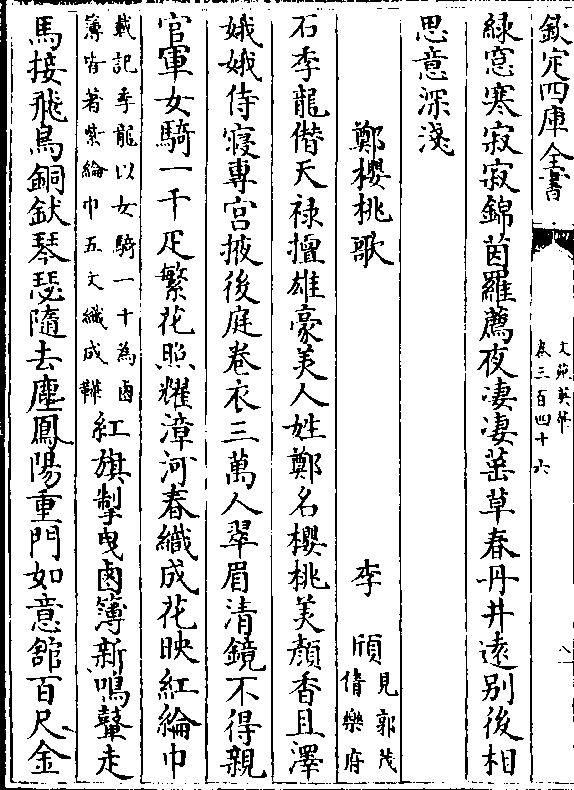 欽定四庫全書
文苑英華
卷三百四十六
綠窻寒寂寂錦茵羅薦夜凄凄莖草春丹井遠别後相
思意深淺
鄭櫻桃歌
李頎
見郭茂
倩樂府
石季龍僣天禄擅雄豪美人姓鄭名櫻桃美顔香且澤
娥娥侍寢專宮掖後庭卷衣三萬人翠眉清鏡不得親
官軍女騎一千疋繁花照耀漳河春織成花映紅綸巾
載記季龍以女騎一千為鹵
簿皆著紫綸巾五文織成鞾
紅旗掣曳鹵簿新鳴鼙走
馬接飛鳥銅鈇琴瑟隨去塵鳳陽重門如意舘百尺金